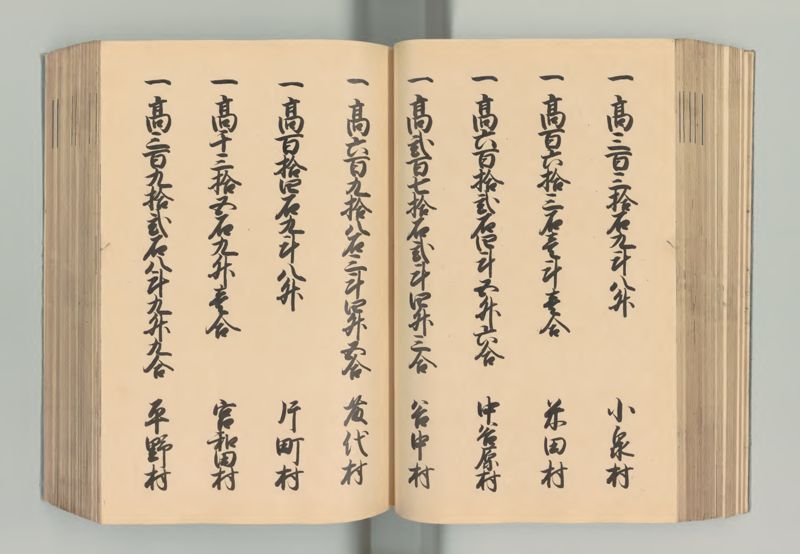 一高三百三拾石九斗八升 小泉村
一高百六拾三石壱斗壱合 米田村
一高六百拾弐石四斗五升六合 中谷原村
一高弐百七拾石弐斗四升三合 谷中村
一高六百九拾八石三斗四升五合 代村
一高百拾四石九斗八升 片町村
一高十三拾五石九升壱合 宮和田村
一高三百九拾弐石八斗九升九合 平野村